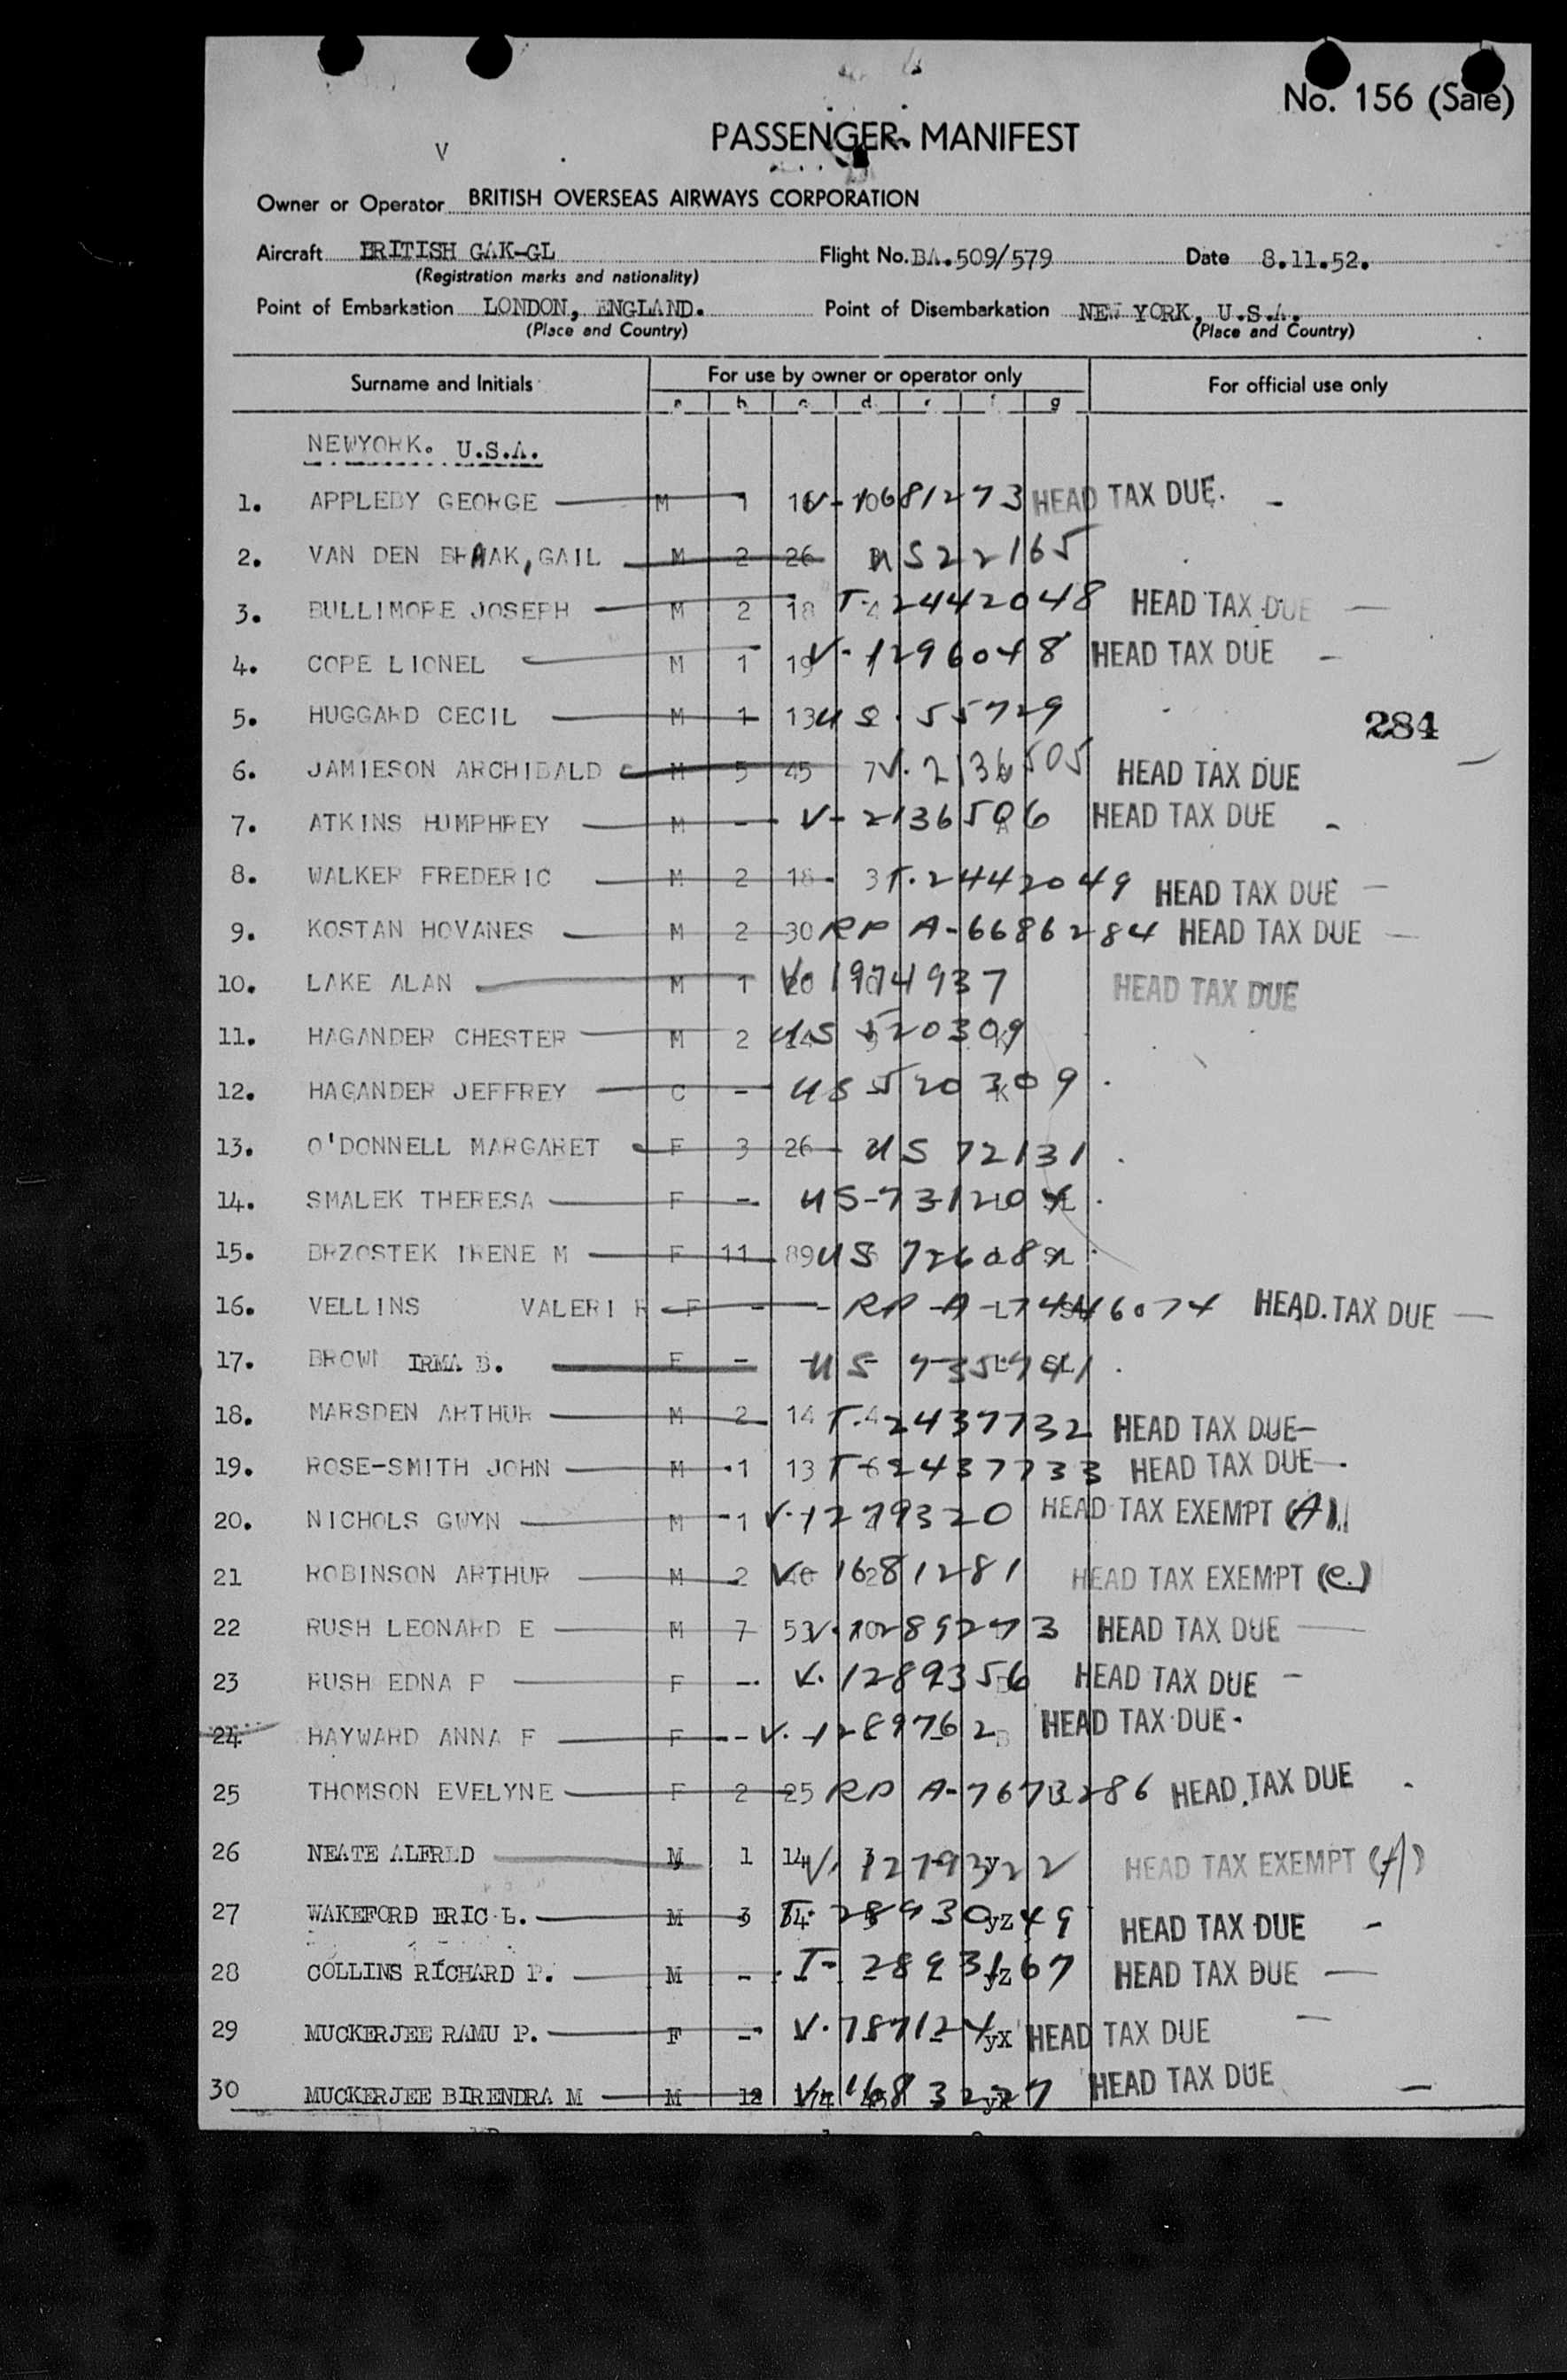 No. 156 (Sale)
PASSENGER MANIFEST
V
Owner or Operator BRITISH OVERSEAS AIRWAYS CORPORATION
Aircraft BRITISH GAK-GL Flight No. BA.509/579 Date 8.11.52.
(Registration marks and nationality)
Point of Embarkation LONDON, ENGLAND. Point of Disembarkation NEW YORK, U.S.A.
(Place and Country) (Place and Country)
Surname and Initials For use by owner or operator only For official use only
a b c d e f g
NEWYORK. U.S.A.
1. APPLEBY GEORGE M 1 HEAD TAX DUE.
2. VAN DEN BRAAK, GAIL M 2 26 US22165
3. BULLIMORE JOSEPH M 2 18 T-2442048 HEAD TAX DUE
4. COPE LIONEL M 1 19 V-1296048 HEAD TAX DUE
5. HUGGARD CECIL M 1 13 US.55729
284
6. JAMIESON ARCHIBALD M 5 45 7 V.2136505 HEAD TAX DUE
7. ATKINS HUMPHREY M - V-2136506 HEAD TAX DUE
8. WALKER FREDERIC M 2 18 3 T.2442049 HEAD TAX DUE
9. KOSTAN HOVANES M 2 30 RP A-6686284 HEAD TAX DUE
10. LAKE ALAN M 1 V-1974937 HEAD TAX DUE
11. HAGANDER CHESTER M 2 US 520309
12. HAGANDER JEFFREY C - US 520309
13. O'DONNELL MARGARET F 3 26 US 72131
14. SMALEK THERESA F - US-73120
15. BRZOSTEK IRENE M F 11 89 US
16. VELLINS VALERI R F - - RP A-7446074 HEAD TAX DUE
17. BROWN IRMA B. F - US
18. MARSDEN ARTHUR M 2 14 4 T-2437732 HEAD TAX DUE
19. ROSE-SMITH JOHN M 1 13 T-2437733 HEAD TAX DUE
20. NICHOLS GWYN M 1 V-1279320 HEAD TAX EXEMPT (A)
21 ROBINSON ARTHUR M 2 V-1681281 HEAD TAX EXEMPT (C.)
22 RUSH LEONARD E M 7 53 V-1289273 HEAD TAX DUE
23 RUSH EDNA P F - V.1289356 HEAD TAX DUE
24 HAYWARD ANNA F F - V.1289762 HEAD TAX DUE
25 THOMSON EVELYNE F 2 25 RP A-7673286 HEAD TAX DUE
26 NEATE ALFRED M 1 14 V. 1279322 HEAD TAX EXEMPT (A)
27 WAKEFORD ERIC L. M 3 T. 2893049 yz HEAD TAX DUE
28 COLLINS RICHARD P. M - T- 2893167 yz HEAD TAX DUE
29 MUCKERJEE RAMU P. F - V.787124 yx HEAD TAX DUE
30 MUCKERJEE BIRENDRA M M 12 V-1683227 HEAD TAX DUE